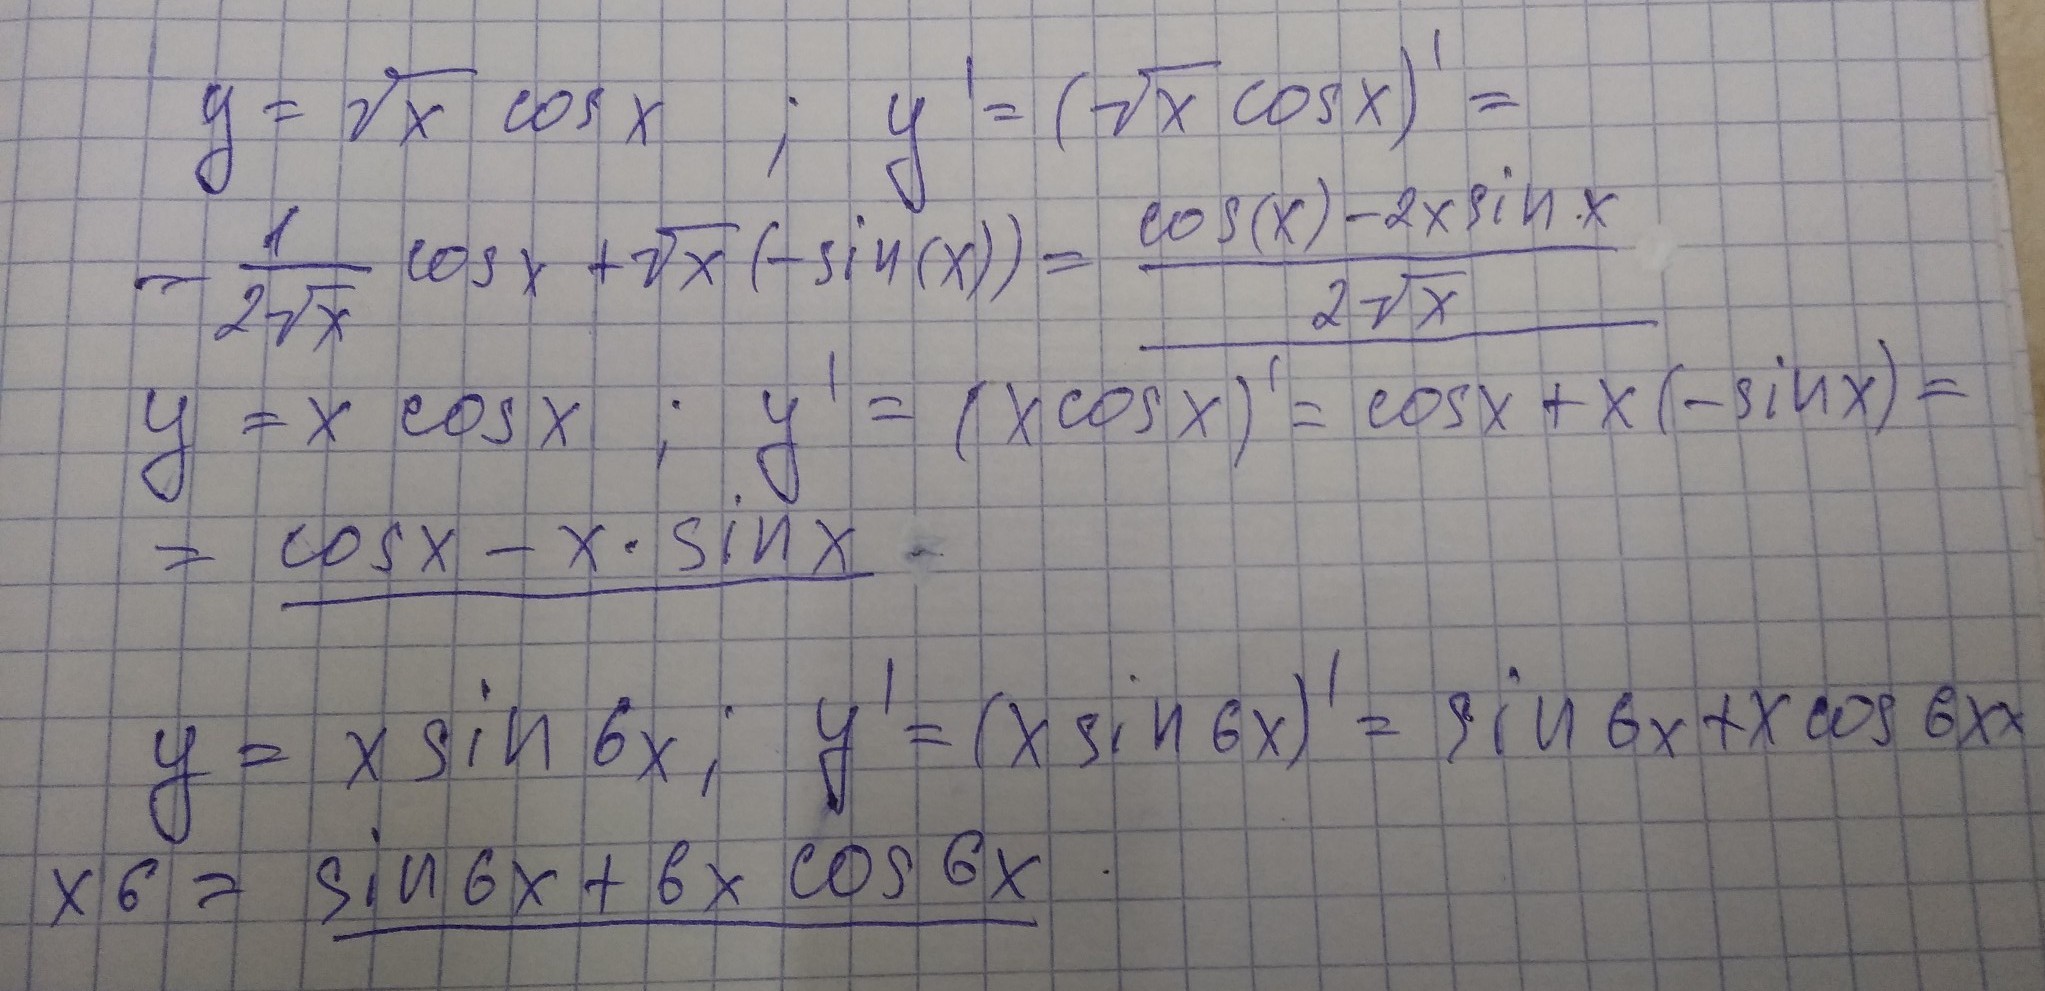 y = √x cos x ; y' = (√x cos x)' =
= 1/(2√x) cos x + √x (-sin(x)) = (cos(x) - 2x sin x)/(2√x)
y = x cos x ; y' = (x cos x)' = cos x + x (-sin x) =
= cos x - x · sin x
y = x sin 6x ; y' = (x sin 6x)' = sin 6x + x cos 6x ×
× 6 = sin 6x + 6x cos 6x